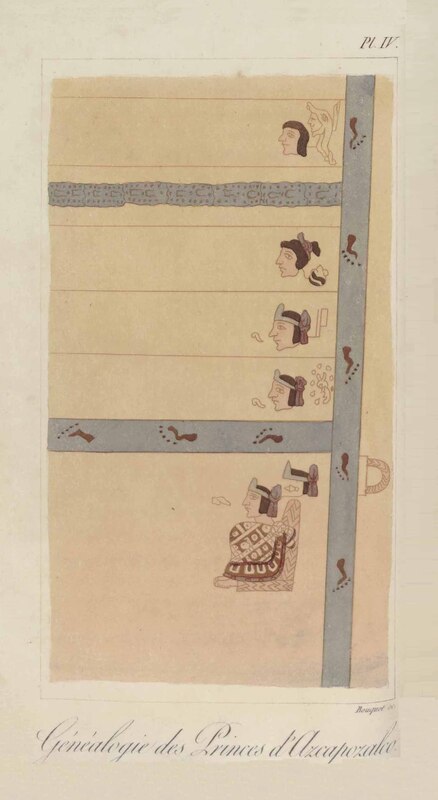 Pl. IV.
Bouquet sc.
Généalogie des Princes d'Azcapozalco.